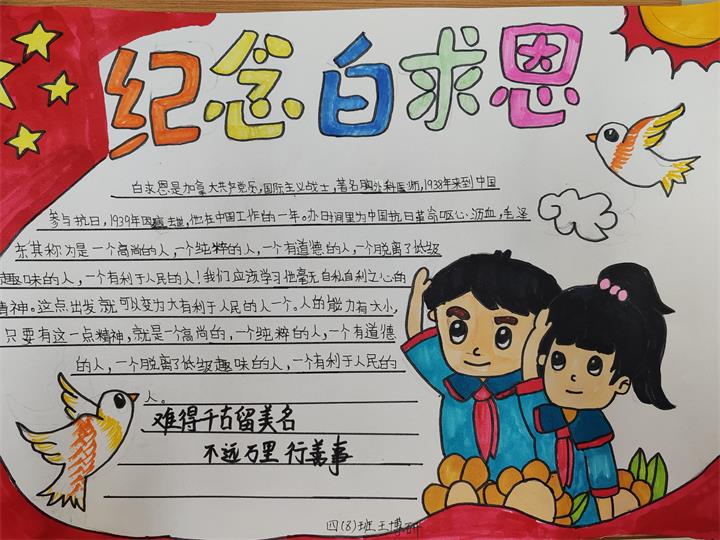 纪念白求恩
白求恩是加拿大共产党员,国际主义战士,著名胸外科医师,1938年来到中国
参与抗日,1939年因病去世,他在中国工作的一年。办时间里为中国抗日革命呕心沥血,毛泽
东其称为是一个高尚的人,一个纯粹的人,一个有道德的人,一个脱离了低级
趣味的人,一个有利于人民的人!我们应该学习他毫无自私自利之心的
精神。这点出发就可以变为大有利于人民的人一个。人的能力有大小,
只要有这一点精神,就是一个高尚的,一个纯粹的人,一个有道德
的人,一个脱离了低级趣味的人,一个有利于人民的
人。
难得千古留美名
不远万里行善事
四(8)班王博研